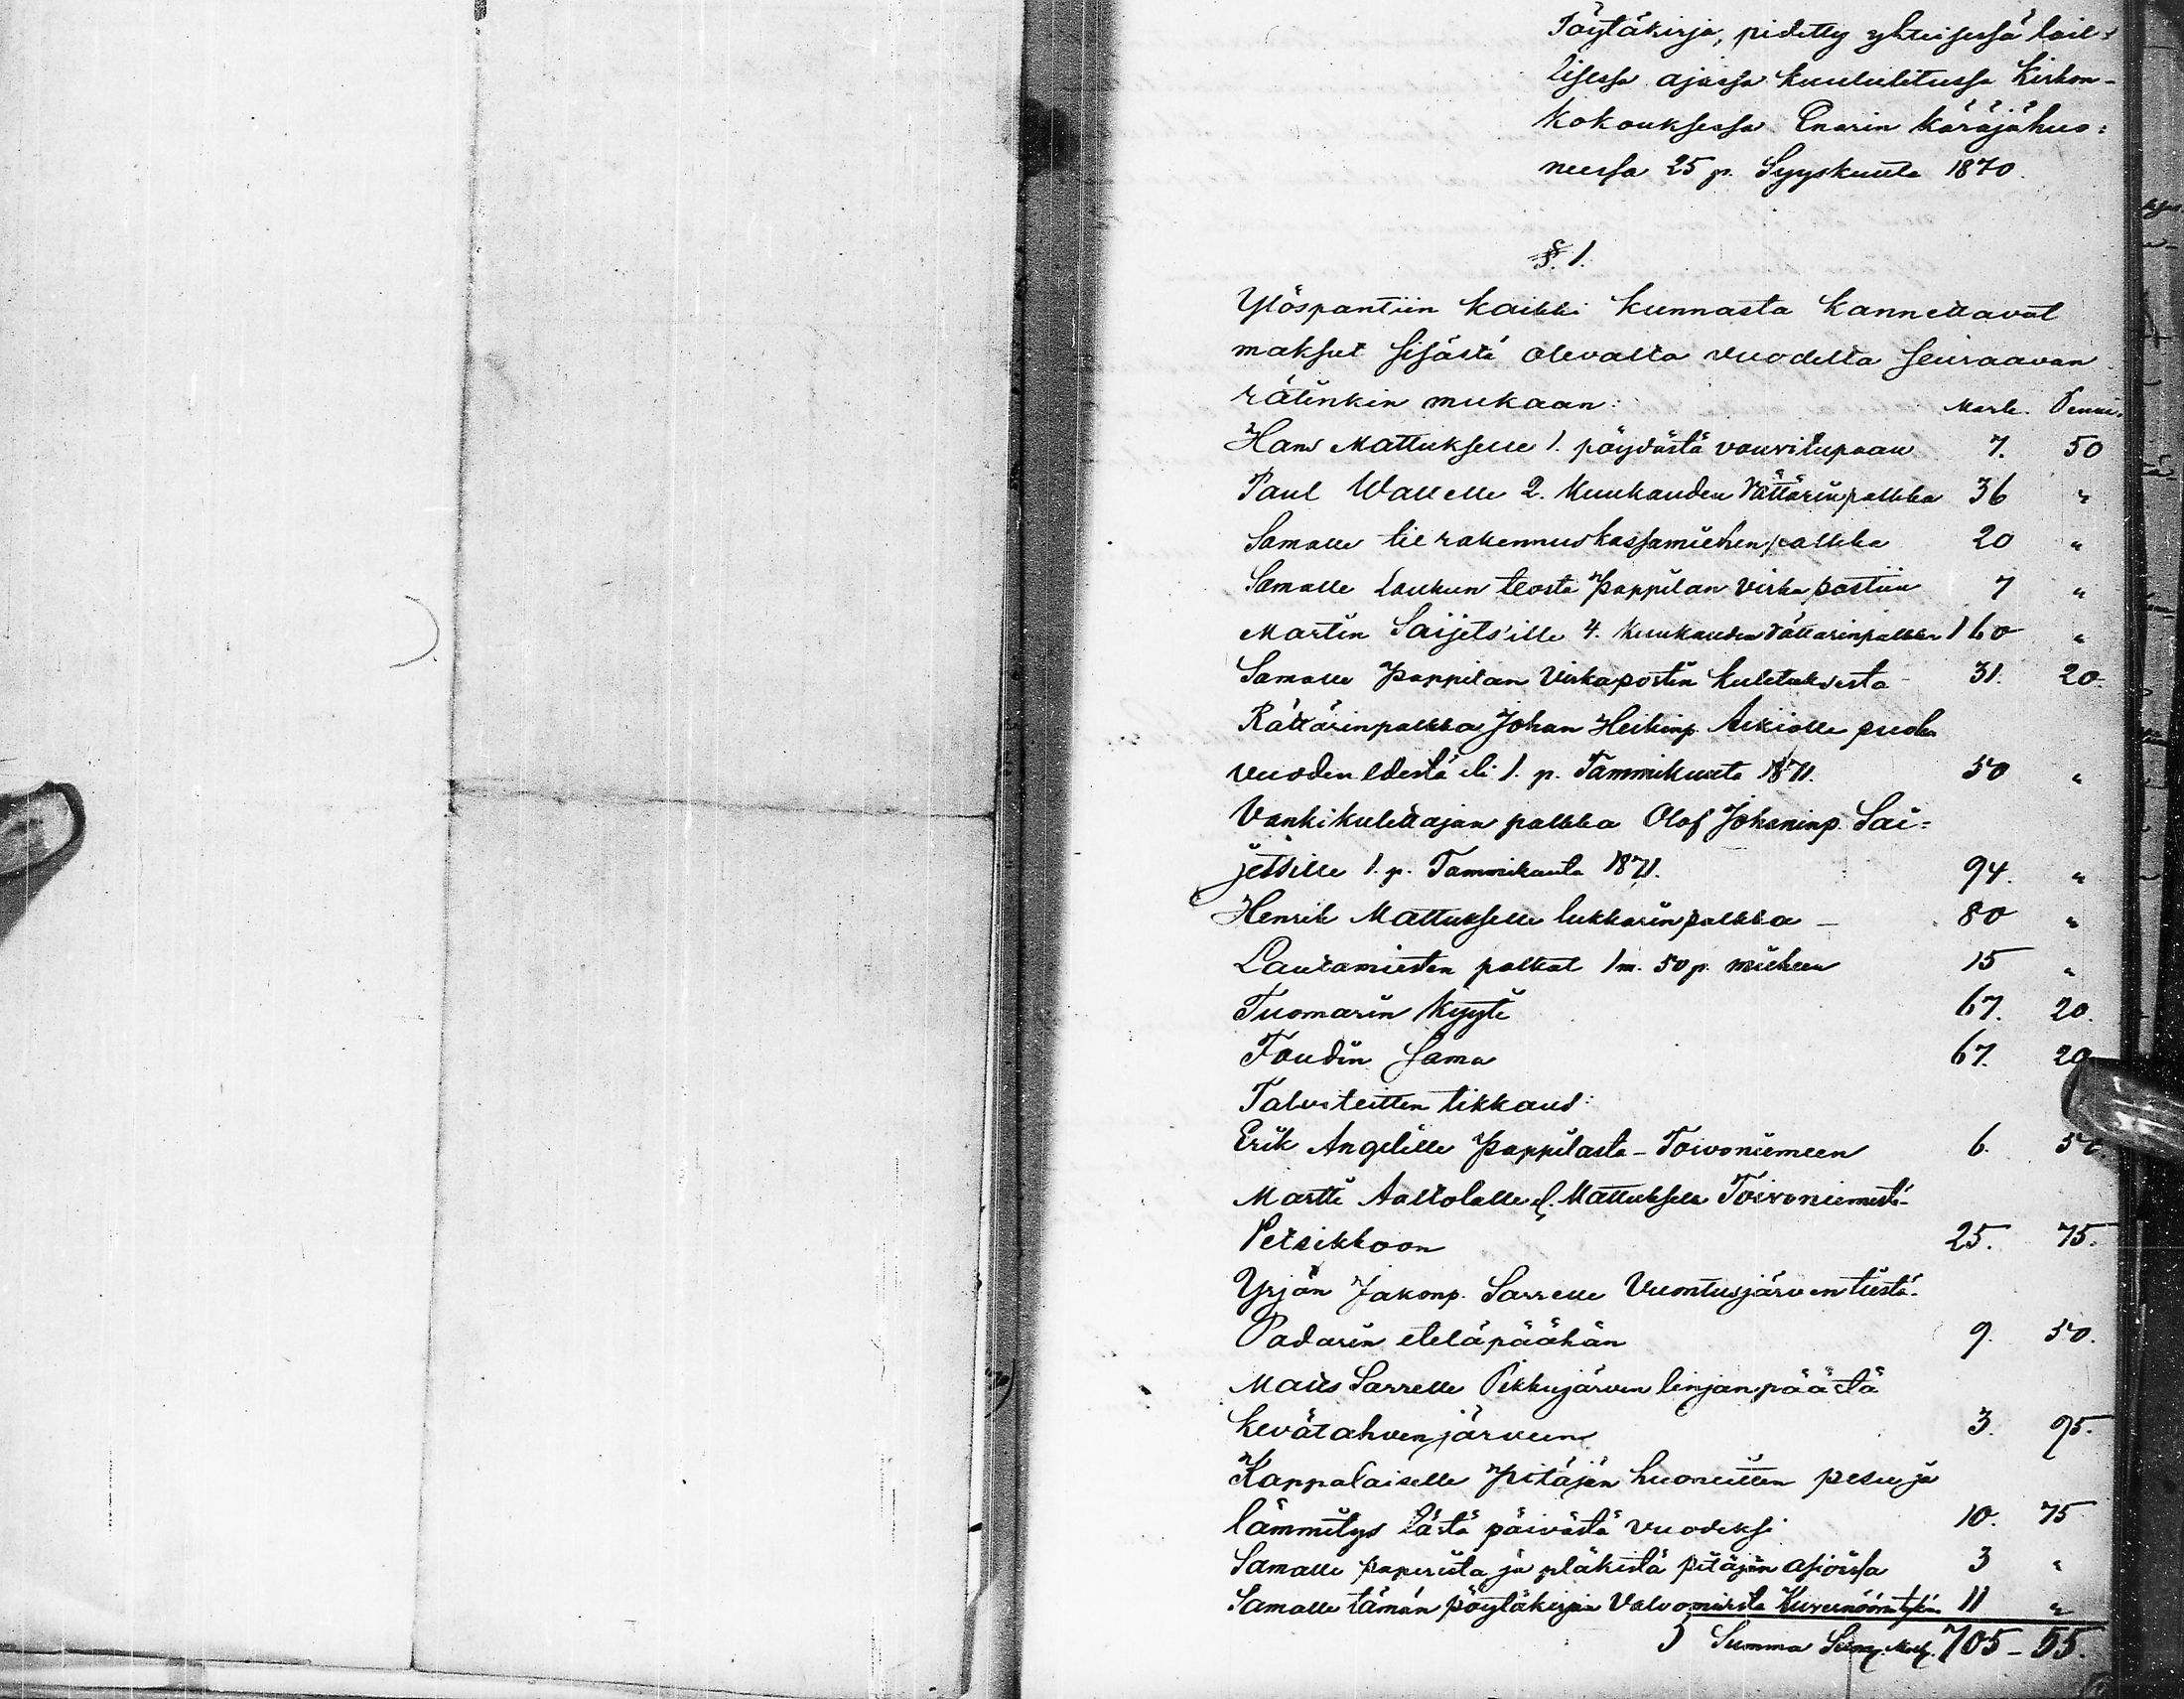 Pöytäkirja, pidetty yhteisessä lail-
lisessa ajassa kuulutetussa Kirkon-
kokouksessa Enarin käräjähuo-
neessa 25 p. Syyskuuta 1870.
§. 1.
Ylöspantiin kaikki kunnasta kannettavat
maksut sisästä olevalta vuodelta seuraavan
rätinkin mukaan: Mark. Penni.
Hans Mattukselle 1. pöydästä vouvitupaan 7. 50
Paul Wallelle 2. kuukauden Rättärin palkka 36 "
Samalle tie rakennus kassamiehen palkka 20 "
Samalle Laukun teosta Pappilan virka postiin 7 "
Martin Saijets'ille 4. kuukauden Rättärinpalkka 160 "
Samalle Pappilan Virkapostin kuletuksesta 31. 20.
Rättärinpalkka Johan Heikinp. Aikiolle puolen
vuoden edestä eli 1. p. Tammikuuta 1871. 50 "
Vankikulettajan palkka Olof Johaninp. Sai-
jetsille 1. p. Tammikuuta 1871. 94. "
Henrik Mattukselle lukkarin palkka — 80 "
Lautamiesten palkat 1 m. 50 p. mieheen 15 "
Tuomarin kyyti 67. 20.
Foudin sama 67. 20
Talviteitten tikkaus:
Erik Angelille Pappilasta - Toivoniemeen 6. 50.
Martti Aaltolalle & Mattuksella Toivoniemestä-
Petsikkoon 25. 75.
Yrjän Jakonp. Sarrelle Vuontusjärven tiestä-
Padarin eteläpäähän 9. 50.
Matts Sarrelle Pikkujärven linjan päästä
kevätahvenjärveen 3. 95.
Kappalaiselle Pitäjän huoneitten pesu ja
lämmitys tästä päivästä vuodeksi 10. 75
Samalle paperista ja pläkistä pitäjän asioissa 3 "
Samalle tämän pöytäkirjan Valvomisesta 11 "
Summa 705 - 55.